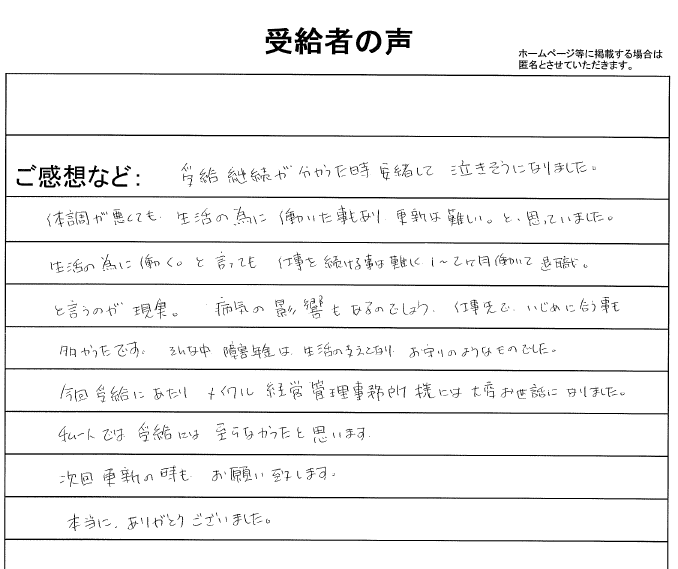 受給者の声
ホームページ等に掲載する場合は
匿名とさせていただきます。
ご感想など： 受給継続が分かった時 安緒して 泣きそうになりました。
体調が悪くても 生活の為に 働いた事もあり 更新は難しい。と、思っていました。
生活の為に働く。と言っても 仕事を続ける事は難しく 1～2ヶ月働いて退職。
と言うのが 現実。 病気の影響もあるのでしょう 仕事先で、いじめに合う事も
多かったです。 そんな中 障害年金は、生活の支えとなり お守りのようなものでした。
今回受給にあたり メイクル 経営管理事務所様には大変お世話になりました。
私一人では 受給には 至らなかったと思います。
次回更新の時も お願い致します。
本当に、ありがとうございました。